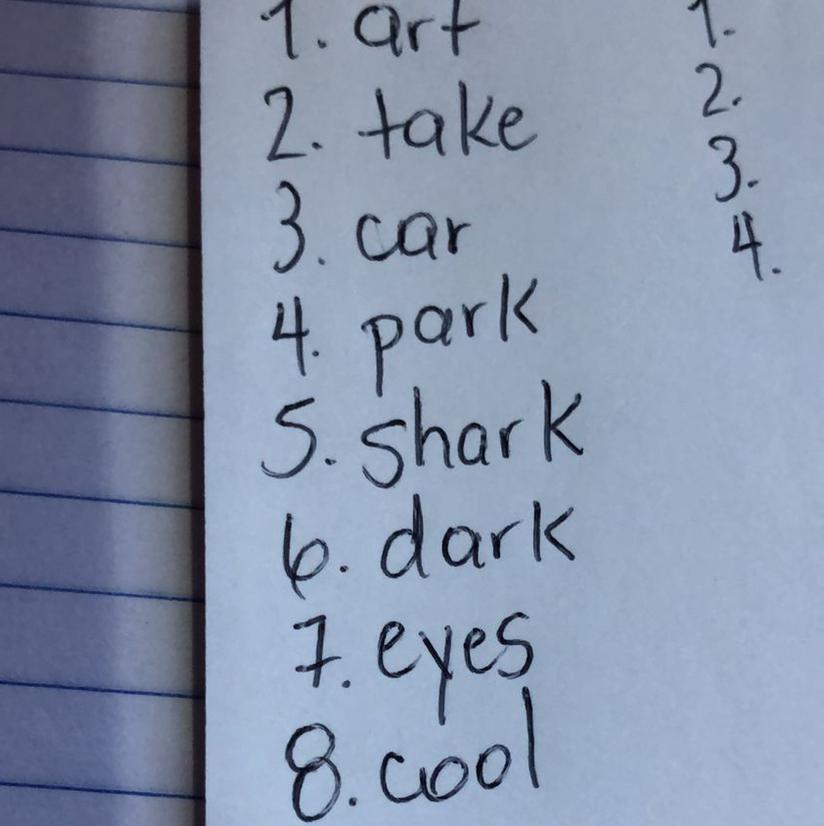 1. art
2. take
3. car
4. park
5. shark
6. dark
7. eyes
8. cool
1.
2.
3.
4.